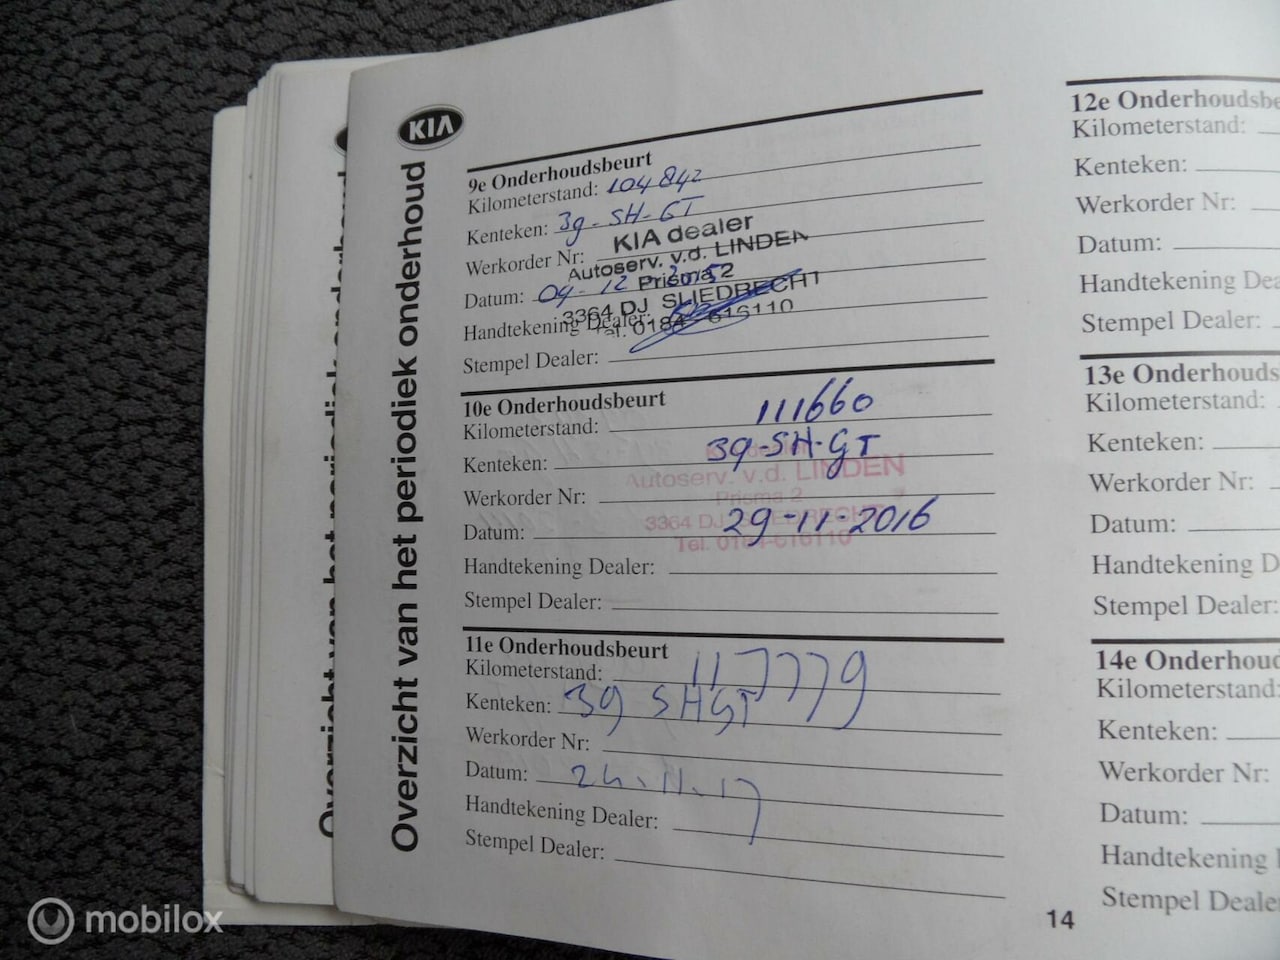 KIA
Overzicht van het periodiek onderhoud
9e Onderhoudsbeurt
Kilometerstand: 104842
Kenteken: 39-SH-GT
Werkorder Nr:
KIA dealer
Autoserv. v.d. LINDEN
Prisma 2
Datum: 04-12-
3364 DJ SLIEDRECHT
Handtekening Dealer:
Tel. 0184-616110
Stempel Dealer:
10e Onderhoudsbeurt
Kilometerstand: 111660
Kenteken: 39-SH-GT
Autoserv. v.d. LINDEN
Werkorder Nr:
Prisma 2
Datum: 29-11-2016
3364 DJ SLIEDRECHT
Tel. 0184-616110
Handtekening Dealer:
Stempel Dealer:
11e Onderhoudsbeurt
Kilometerstand: 117779
Kenteken: 39 SHGT
Werkorder Nr:
Datum: 24.11.17
Handtekening Dealer:
Stempel Dealer:
14
12e Onderhoudsbe
Kilometerstand:
Kenteken:
Werkorder Nr:
Datum:
Handtekening Dea
Stempel Dealer:
13e Onderhouds
Kilometerstand:
Kenteken:
Werkorder Nr:
Datum:
Handtekening D
Stempel Dealer:
14e Onderhoud
Kilometerstand:
Kenteken:
Werkorder Nr:
Datum:
Handtekening
Stempel Deale
mobilox